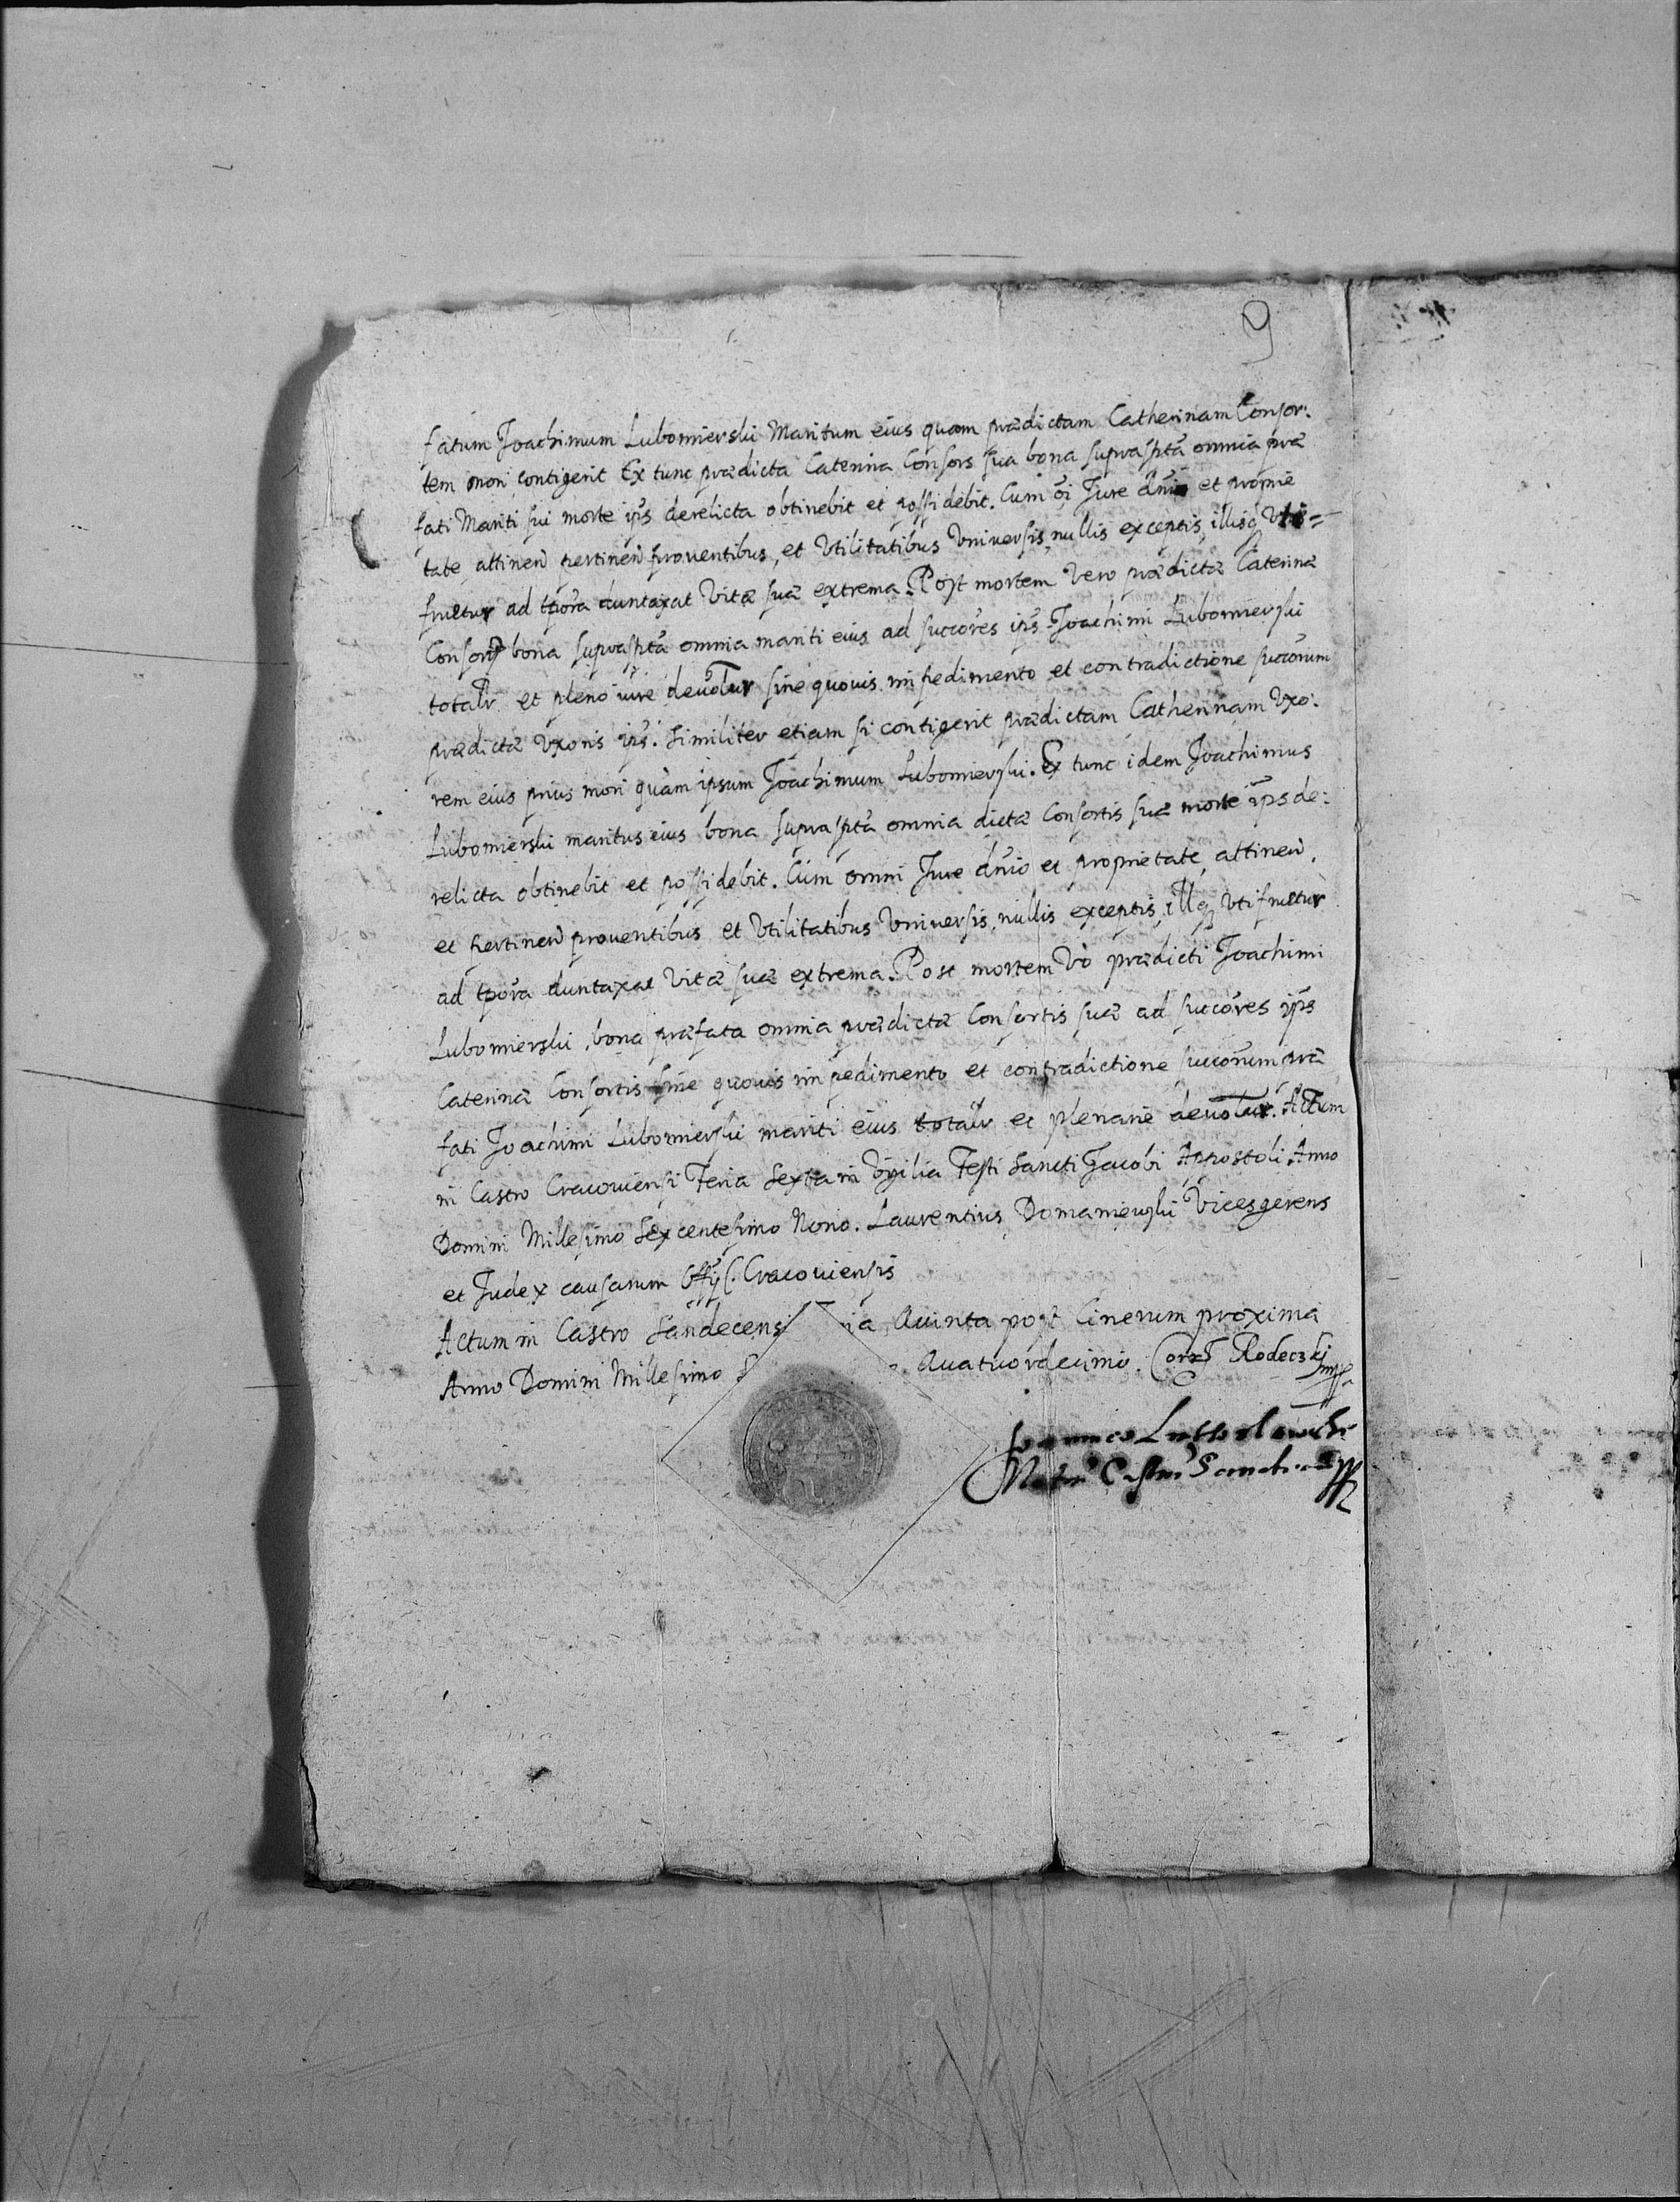 9
fatum Joachimum Lubomierski Maritum eius quam prædictam Catherinam Consor:
tem mori contigerit Ex tunc prædicta Caterina Consors sua bona suprasptã omnia præ
fati Mariti sui morte ip̃s derelicta obtinebit et possidebit. Cum õi Jure dñio et proprie
tate attineñ pertineñ prouentibus, et Vtilitatibus Vniuersis nullis exceptis, illisq̃ Vti=
fruetur ad tpõra duntaxat Vitæ suæ extrema. Post mortem Vero prædictæ Caterinæ
Consortis bona suprasptã omnia mariti eius ad succõres ip̃s Joachimi Lubomierski
totalr̃ et pleno iure deuolũtur sine quouis impedimento et contradictione succõrum
prædictæ Vxoris ip̃s. Similiter etiam si contigerit prædictam Catherinam Vxo:
rem eius prius mori quàm ipsum Joachimum Lubomierski. Ex tunc idem Joachimus
Lubomierski maritus eius bona suprasptã omnia dictæ Consortis suæ morte ip̃s de:
relicta obtinebit et possidebit. Cum omni Jure dñio et proprietate, attineñ,
et pertineñ prouentibus et Vtilitatibus Vniuersis, nullis exceptis, illisq̃ Vtifruetur
ad tpõra duntaxat Vitæ suæ extrema. Post mortem Võ prædicti Joachimi
Lubomierski, bona præfata omnia prædictæ Consortis suæ ad succõres ip̃s
Caterinæ Consortis sine quouis impedimento et contradictione succõrum præ
fati Joachimi Lubomierski mariti eius totalr̃ et plenarie deuolũtur. Actum
in Castro Cracouiensi Feria Sexta in Vigilia Festi Sancti Jacobi Appostoli Anno
Domini Millesimo Sexcentesimo Nono. Laurentius Domanieuski Vicesgerens
et Judex causarum Offi͂j C. Cracouiensis
Actum in Castro Sandecens ia Quinta post Cinerum proxima
Anno Domini Millesimo S Quatuordecimo. Corx̃t Rodeczki mpp
Castren̄